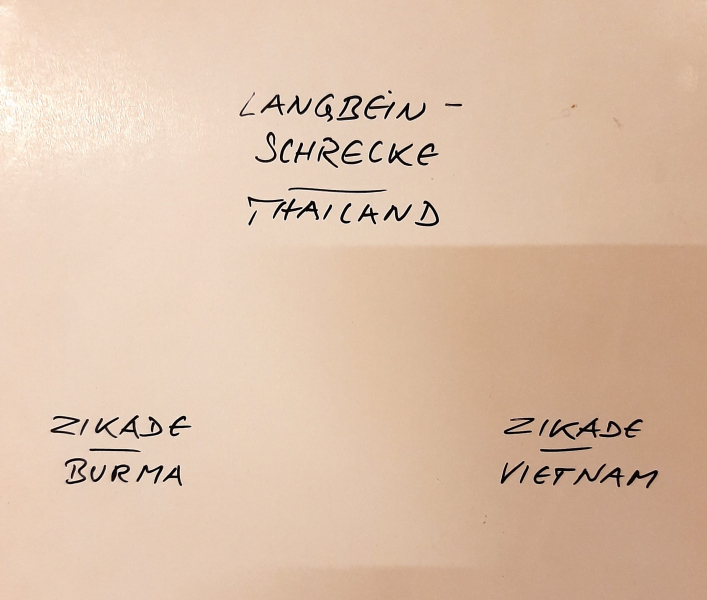 LANGBEIN-
SCHRECKE
THAILAND
ZIKADE
BURMA
ZIKADE
VIETNAM